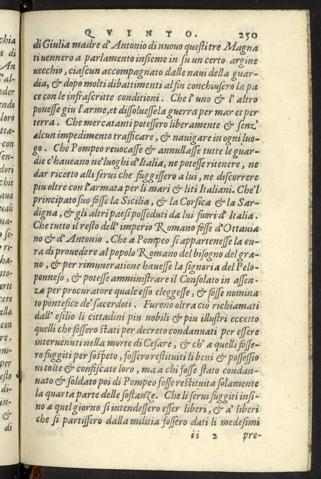 QVINTO. 250
di Giulia madre d'Antonio di nuouo questi tre Magna
ti vennero a parlamento insieme in su un certo argine
uecchio, ciascun accompagnato dalle naui della guar-
dia, & dopo molti dibattimenti al fin conchiusero la pa
ce con le infrascritte conditioni. Che l'uno & l'altro
ponesse giu l'arme, et dissoluesse la guerra per mar et per
terra. Che mercatanti potessero liberamente & senz'
alcun impedimento trafficare, & nauigare in ogni luo-
go. Che Pompeo reuocasse & annullasse tutte le guar-
die c'haueano ne' luoghi d'Italia, ne potesse ritenere, ne
dar ricetto alli serui che fuggissero a lui, ne discorrere
piu oltre con l'armata per li mari & liti Italiani. Che'l
principato suo fosse la Sicilia, & la Corsica & la Sar-
digna, & gli altri paesi posseduti da lui fuori d'Italia.
Che tutto il resto dell'imperio Romano fosse d'Ottauia
no & d'Antonio. Che a Pompeo si appartenesse la cu-
ra di prouedere al popolo Romano del bisogno del gra-
no, & per rimuneratione hauesse la signoria del Pelo-
ponneso, & potesse amministrare il Consolato in assen-
za per procuratore quale esso eleggesse, & fosse nomina
to pontefice de' sacerdoti. Furono oltra ciò richiamati
dall'esilio li cittadini piu nobili & piu illustri eccetto
quelli che fossero stati per decreto condannati per essere
interuenuti nella morte di Cesare, & ch'a quelli fosse-
ro fuggiti per sospeto, fossero restituiti li beni & possessio
ni tolte & confiscate loro, ma a chi fosse stato condan-
nato & soldato poi di Pompeo fosse restituita solamente
la quarta parte delle sostanze. Che li serui fuggiti insi-
no a quel giorno si intendessero esser liberi, & a' liberi
che si partissero dalla militia fossero dati li medesimi
ii 2 pre-